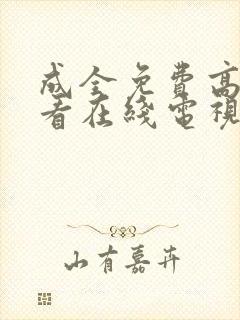 成全免費高
看在綫電視
山有嘉卉